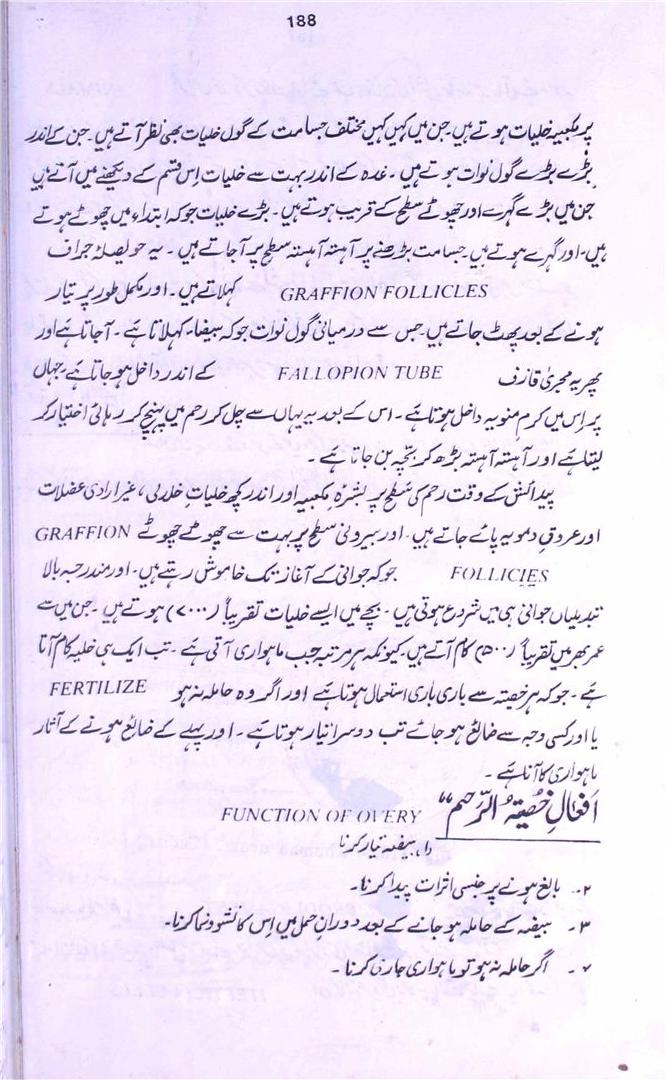 188
پر مکعبیہ خلیات ہوتے ہیں۔ جن میں کہیں کہیں مختلف جسامت کے گول خلیات بھی نظر آتے ہیں۔ جن کے اندر
بڑے بڑے گول نوات ہوتے ہیں۔ غدہ کے اندر بہت سے خلیات اِس قسم کے دیکھنے میں آتے ہیں
جن میں بڑے گہرے اور چھوٹے سطح کے قریب ہوتے ہیں۔ بڑے خلیات جو کہ ابتداء میں چھوٹے ہوتے
ہیں۔ اور گہرے ہوتے ہیں۔ جسامت بڑھنے پر آہستہ آہستہ سطح پر آجاتے ہیں۔ یہ حویصلۂ جراف
GRAFFION FOLLICLES کہلاتے ہیں۔ اور مکمل طور پر تیار
ہونے کے بعد پھٹ جاتے ہیں۔ جس سے درمیانی گول نوات جو کہ بیضا، کہلاتا ہے۔ آجاتا ہے اور
پھر یہ مجریٰ قاذف FALLOPION TUBE کے اندر داخل ہو جاتا ہے۔ جہاں
پر اِس میں کرم منویہ داخل ہوتا ہے۔ اس کے بعد یہ یہاں سے چل کر رحم میں پہنچ کر رہائی اختیار کر
لیتا ہے اور آہستہ آہستہ بڑھ کر بچہ بن جاتا ہے۔
پیدائش کے وقت رحم کی سطح پر بشرہ مکعبیہ اور اندر کچھ خلیاتِ خلدلی، غیر ارادی عضلات
اور عروقِ دمویہ پائے جاتے ہیں۔ اور بیرونی سطح پر بہت سے چھوٹے چھوٹے GRAFFION
FOLLICIES جو کہ جوانی کے آغاز تک خاموش رہتے ہیں۔ اور مندرجہ بالا
تبدیلیاں جوانی ہی میں شروع ہوتی ہیں۔ بچے میں ایسے خلیات تقریباً (۷۰۰۰) ہوتے ہیں۔ جن میں سے
عمر بھر میں تقریباً (۵۰۰) کام آتے ہیں۔ کیونکہ ہر مرتبہ جب ماہواری آتی ہے۔ تب ایک ہی خلیہ کام آتا
ہے۔ جو کہ ہر خصیتہ سے باری باری استعمال ہوتا ہے اور اگر وہ حاملہ نہ ہو FERTILIZE
یا اور کسی وجہ سے ضائع ہو جائے تب دوسرا تیار ہوتا ہے۔ اور پہلے کے ضائع ہونے کے آثار
ماہواری کا آنا ہے۔
اَفعالِ خصیۃُ الرّحم“ FUNCTION OF OVERY
(۱) بیضہ تیار کرنا
۲۔ بالغ ہونے پر جنسی اثرات پیدا کرنا۔
۳۔ بیضہ کے حاملہ ہو جانے کے بعد دورانِ حمل میں اس کا نشوونما کرنا۔
۴۔ اگر حاملہ نہ ہو تو ماہواری جاری کرنا۔